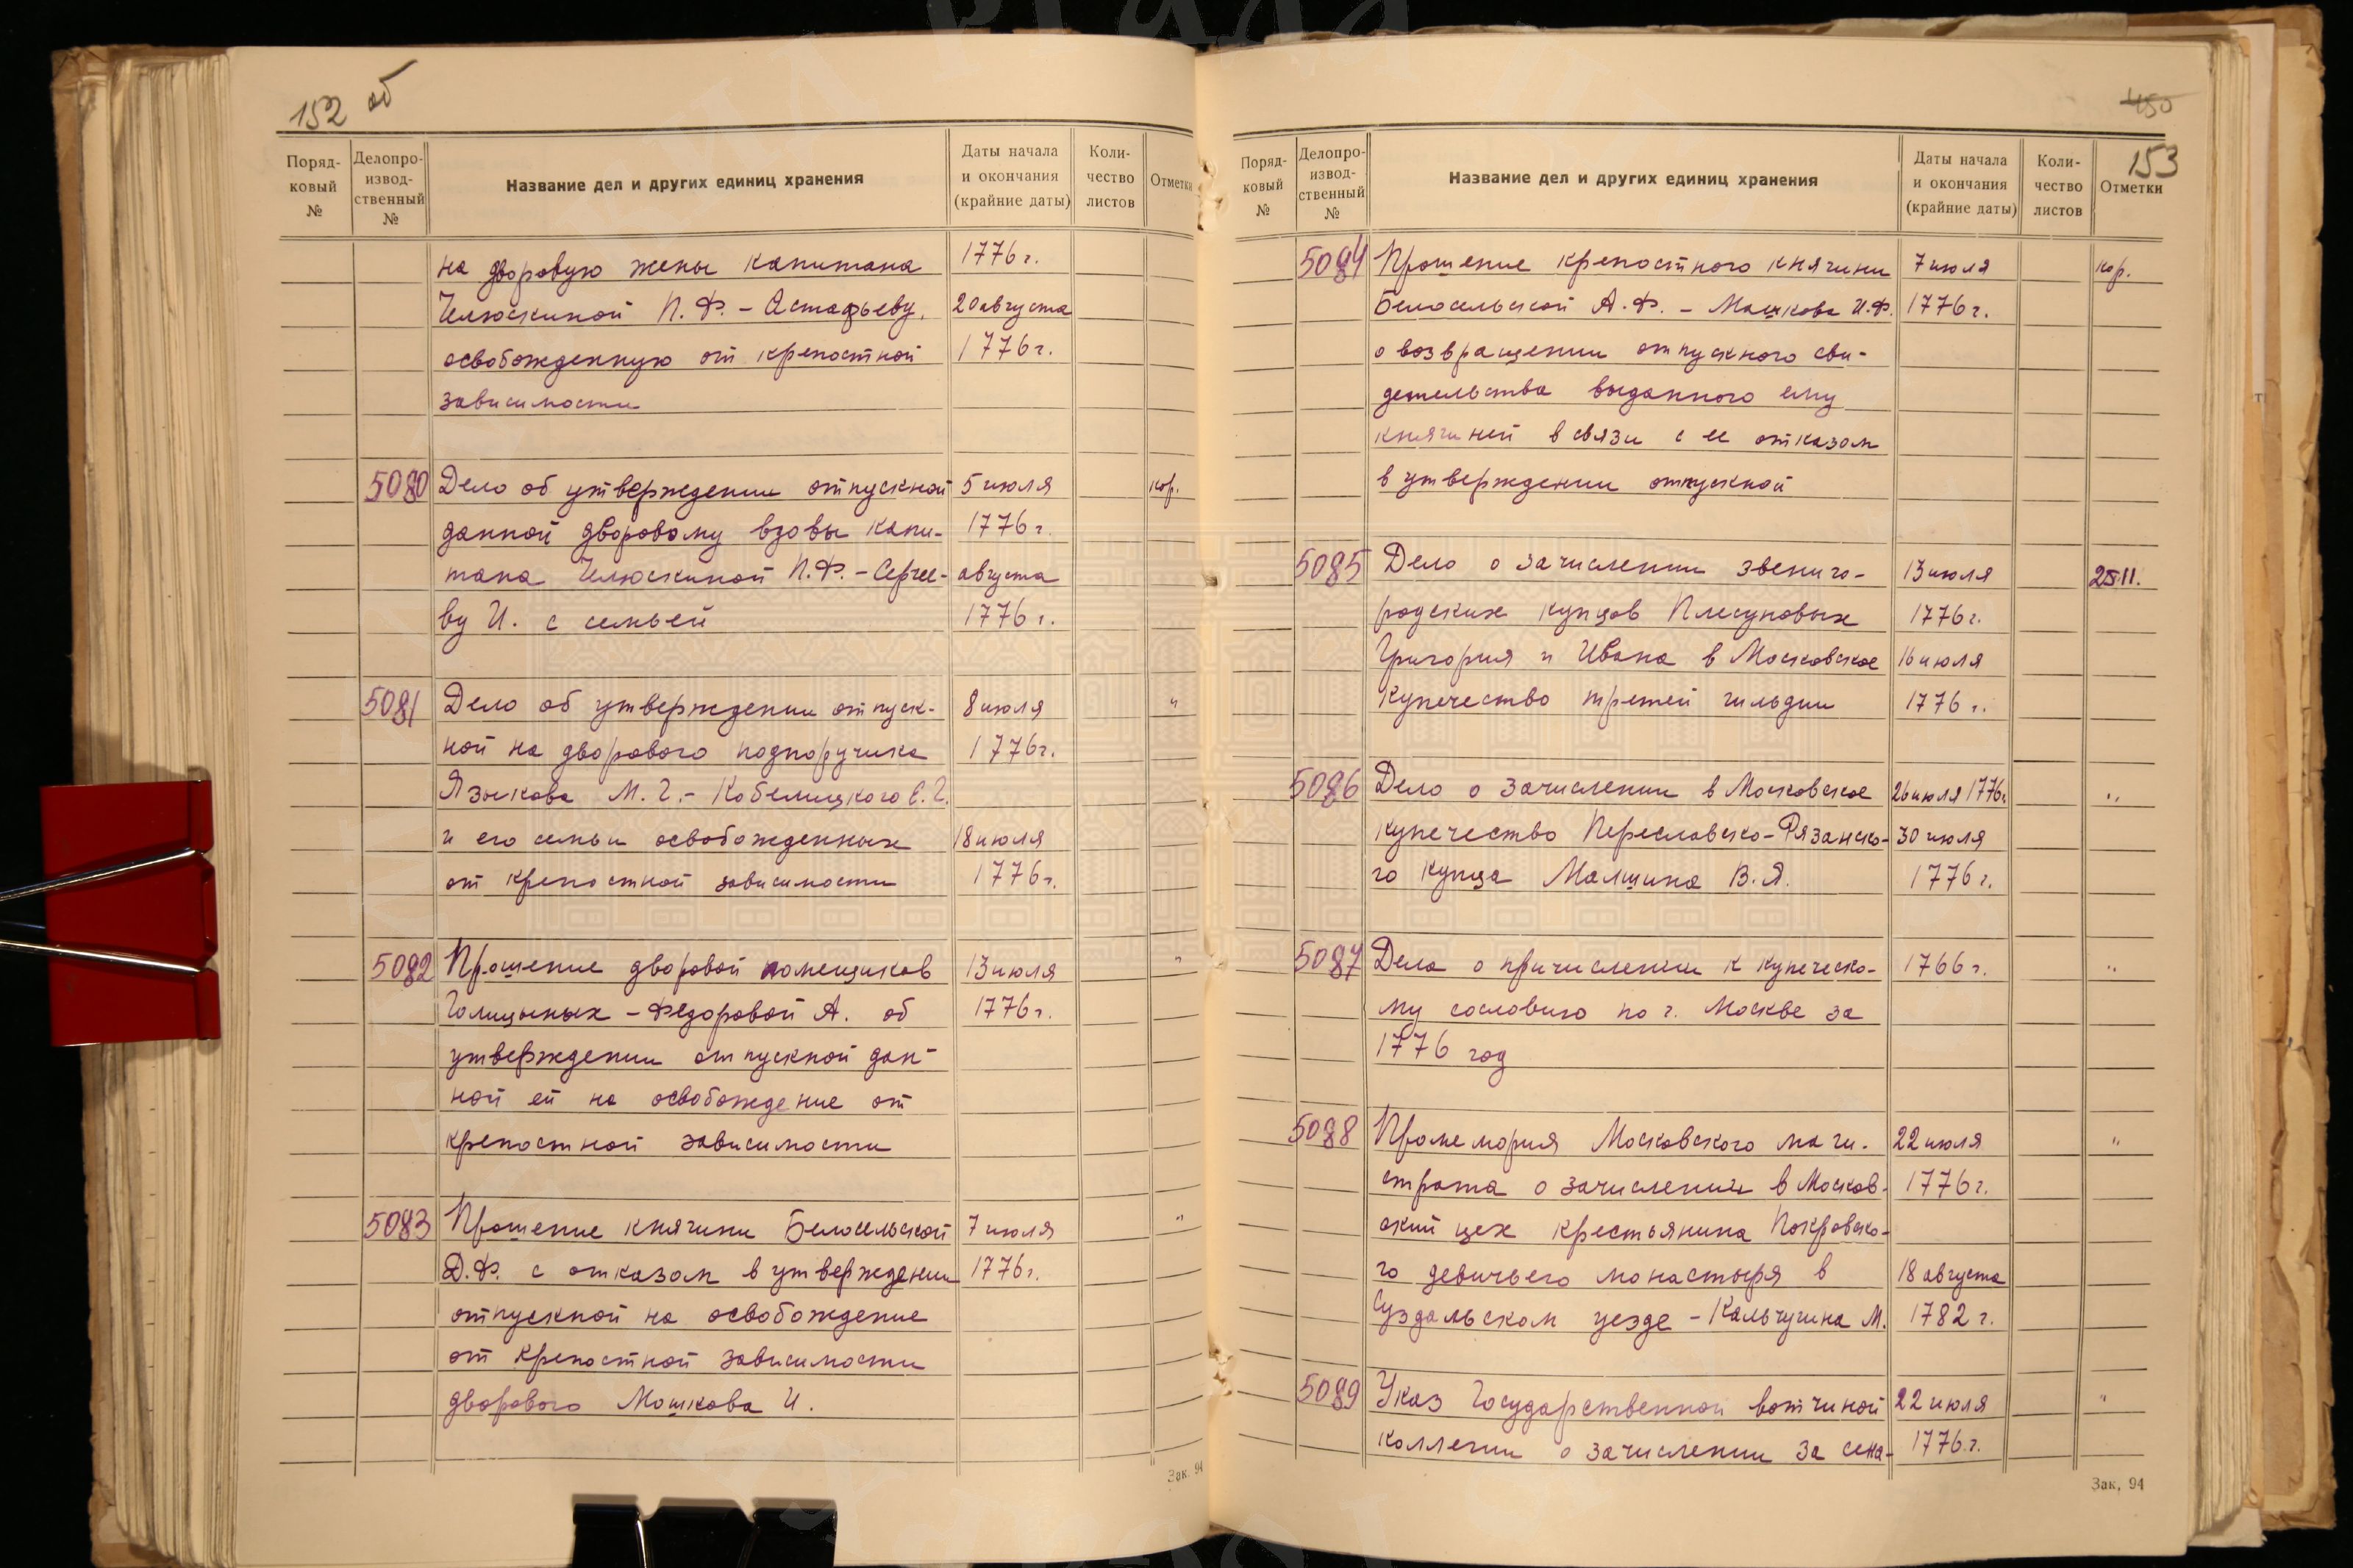 152 об
Поряд-
ковый
№
Делопро-
извод-
ственный
№
Название дел и других единиц хранения
Даты начала
и окончания
(крайние даты)
Коли-
чество
листов
Отметки
на дворовую жены капитана 1776 г.
Челюскиной П.Ф. – Астафьеву, 20 августа
освобожденную от крепостной 1776 г.
зависимости
5080 Дело об утверждении отпускной 5 июля кор.
данной дворовому вдовы капи- 1776 г.
тана Челюскиной П.Ф. – Сергее- августа
ву И. с семьей 1776 г.
5081 Дело об утверждении отпуск- 8 июля "
ной на дворового подпоручика 1776 г.
Языкова М.Г. – Кобелицкого Е.Г.
и его семьи освобожденных 18 июля
от крепостной зависимости 1776 г.
5082 Прошение дворовой помещиков 13 июля "
Голицыных – Федоровой А. об 1776 г.
утверждении отпускной дан-
ной ей на освобождение от
крепостной зависимости
5083 Прошение княгини Белосельской 7 июля "
Д.Ф. с отказом в утверждении 1776 г.
отпускной на освобождение
от крепостной зависимости
дворового Мошкова И.
Зак. 94
450
153
Поряд-
ковый
№
Делопро-
извод-
ственный
№
Название дел и других единиц хранения
Даты начала
и окончания
(крайние даты)
Коли-
чество
листов
Отметки
5084 Прошение крепостного княгини 7 июля кор.
Белосельской А.Ф. – Машкова И.Ф. 1776 г.
о возвращении отпускного сви-
детельства выданного ему
княгиней в связи с ее отказом
в утверждении отпускной
5085 Дело о зачислении звениго- 13 июля
родских купцов Плесуновых 1776 г.
Григория и Ивана в Московское 16 июля
купечество третей гильдии 1776 г.
5086 Дело о зачислении в Московское 26 июля 1776 г. "
купечество Переславско-Рязанско- 30 июля
го купца Малшина В.Я. 1776 г.
5087 Дела о причислении к купеческо- 1766 г. "
му сословию по г. Москве за
1776 год
5088 Промемория Московского маги- 22 июля "
страта о зачислении в Москов- 1776 г.
ский цех крестьянина Покровско-
го девичьего монастыря в 18 августа
Суздальском уезде – Кальчугина М. 1782 г.
5089 Указ Государственной вотчиной 22 июля "
коллегии о зачислении за сена- 1776 г.
Зак. 94